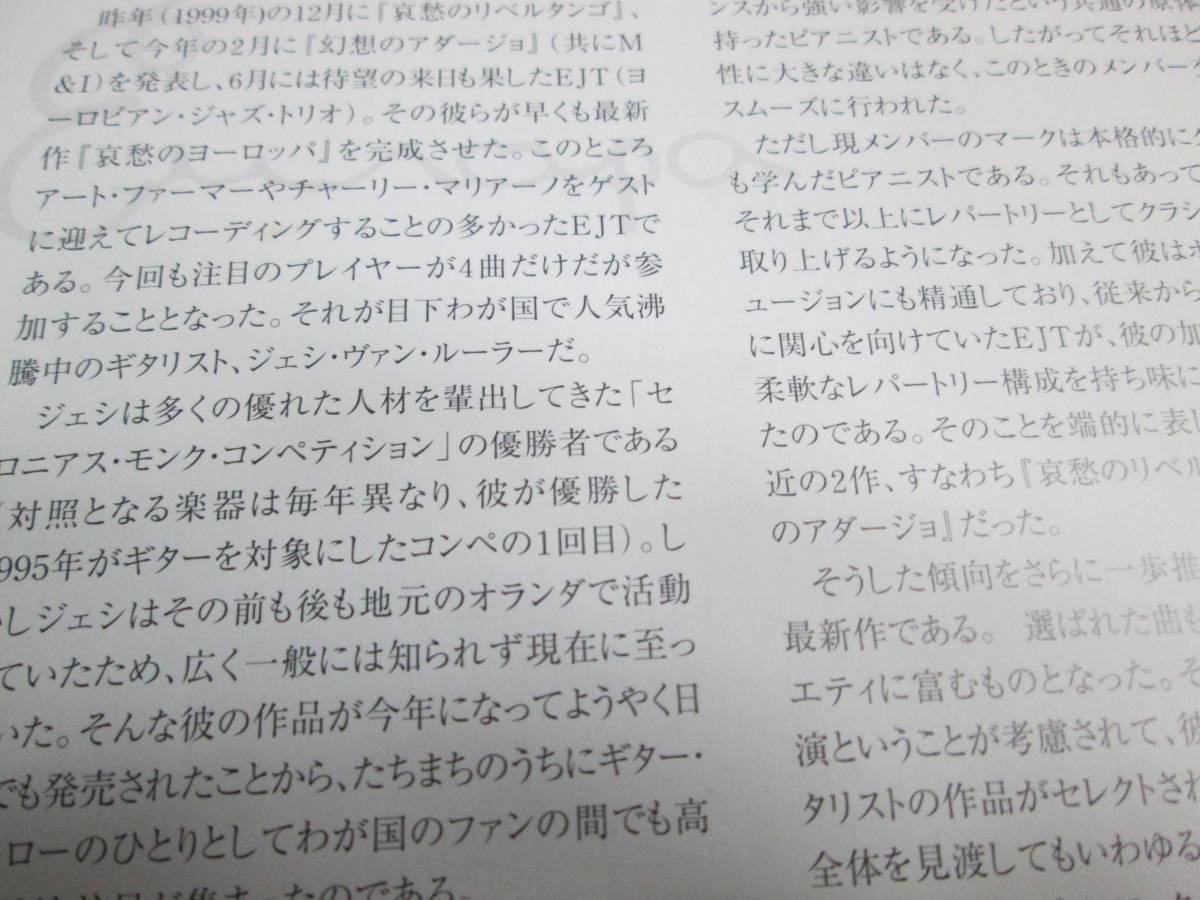 昨年(1999年)の12月に『哀愁のリベルタンゴ』、
そして今年の2月に『幻想のアダージョ』(共にM
&I)を発表し、6月には待望の来日も果したEJT(ヨ
ーロピアン・ジャズ・トリオ)。その彼らが早くも最新
作『哀愁のヨーロッパ』を完成させた。このところ
アート・ファーマーやチャーリー・マリアーノをゲスト
に迎えてレコーディングすることの多かったEJTで
ある。今回も注目のプレイヤーが4曲だけだが参
加することとなった。それが目下わが国で人気沸
騰中のギタリスト、ジェシ・ヴァン・ルーラーだ。
ジェシは多くの優れた人材を輩出してきた「セ
ロニアス・モンク・コンペティション」の優勝者である
(対照となる楽器は毎年異なり、彼が優勝した
995年がギターを対象にしたコンペの1回目)。し
しジェシはその前も後も地元のオランダで活動
ていたため、広く一般には知られず現在に至っ
いた。そんな彼の作品が今年になってようやく日
でも発売されたことから、たちまちのうちにギター・
ーローのひとりとしてわが国のファンの間でも高
ったのである。
ンスから強い影響を受けたという共通の原体
持ったピアニストである。したがってそれほど
性に大きな違いはなく、このときのメンバー
スムーズに行われた。
ただし現メンバーのマークは本格的に
も学んだピアニストである。それもあって
それまで以上にレパートリーとしてクラシ
取り上げるようになった。加えて彼は
ュージョンにも精通しており、従来から
に関心を向けていたEJTが、彼の加
柔軟なレパートリー構成を持ち味に
たのである。そのことを端的に表
近の2作、すなわち『哀愁のリベル
のアダージョ』だった。
そうした傾向をさらに一歩推
最新作である。 選ばれた曲も
エティに富むものとなった。そ
演ということが考慮されて、彼
タリストの作品がセレクトされ
全体を見渡してもいわゆる